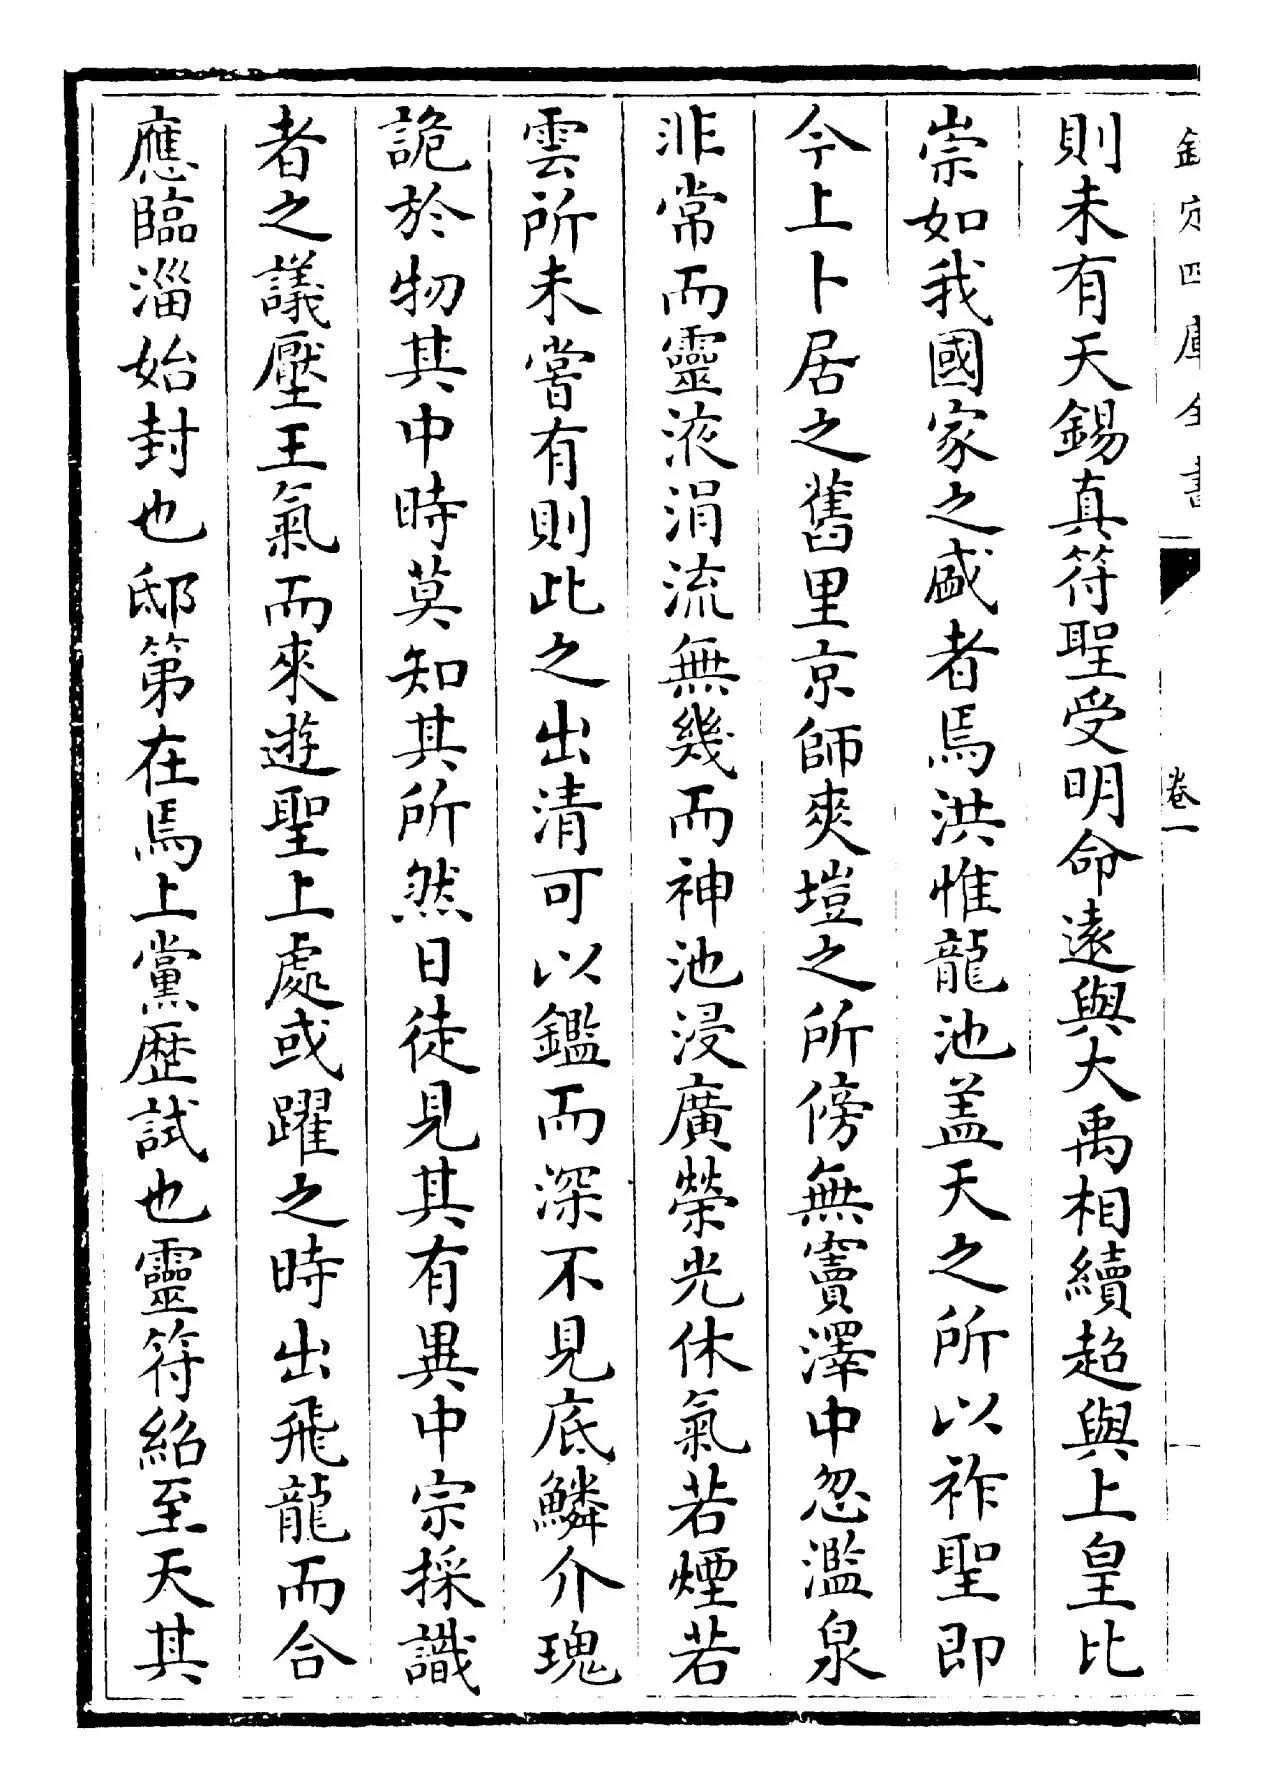 欽定四庫全書
卷一
則未有天錫真符聖受明命遠與大禹相續超與上皇比
崇如我國家之盛者焉洪惟龍池盖天之所以祚聖即
今上卜居之舊里京師爽塏之所傍無竇澤中忽濫泉
非常而靈液涓流無幾而神池浸廣榮光休氣若煙若
雲所未嘗有則此之出清可以鑑而深不見底鱗介瑰
詭於物其中時莫知其所然日徒見其有異中宗採識
者之議壓王氣而來遊聖上處或躍之時出飛龍而合
應臨淄始封也邸第在焉上黨歴試也靈符紹至天其